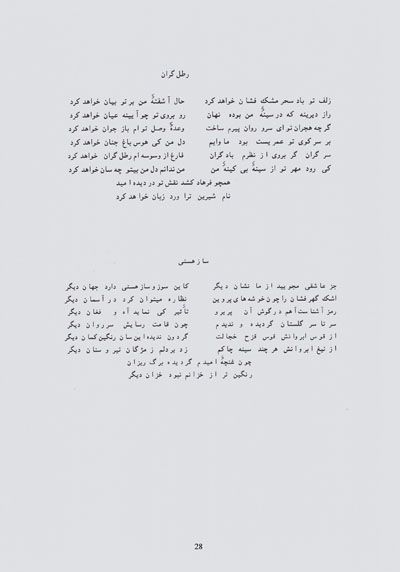 رطل گران
زلف تو باد سحر مشک فشان خواهد کرد حال آشفتهٔ من بر تو بیان خواهد کرد
راز دیرینه که در سینهٔ من بوده نهان رو بروی تو چو آیینه عیان خواهد کرد
گر چه هجران تو ای سرو روان پیرم ساخت وعدهٔ وصل تو ام باز جوان خواهد کرد
بر سر کوی تو عمریست بود ما وایم دل من کی هوس باغ جنان خواهد کرد
سر گران گر بروی از نظرم باد گران فارغ از وسوسه ام رطل گران خواهد کرد
کی رود مهر تو از سینهٔ بی کینهٔ من من ندانم دل من بیتو چه سان خواهد کرد
همچو فرهاد کشد نقش تو در دیده امید
نام شیرین ترا ورد زبان خواهد کرد
ساز هستی
جز عاشقی مجویید از ما نشان دیگر کاین سوز و ساز هستی دارد جهان دیگر
اشک گهر فشان را چون خوشه های پروین نظاره میتوان کرد در آسمان دیگر
رمز آشناست آهم در گوش آن پریرو تأثیر کی نماید آه و فغان دیگر
سر تا سر گلستان گردیده و ندیدم چون قامت رسایش سرو روان دیگر
از قوس ابروانش قوس قزح خجالت گردون ندیده این سان رنگین کمان دیگر
از تیغ ابروانش هر چند سینه چاکم زد بر دلم ز مژگان تیر و سنان دیگر
چون غنچهٔ امیدم گردیده برگ ریزان
رنگین تر از خزانم نبود خزان دیگر
28